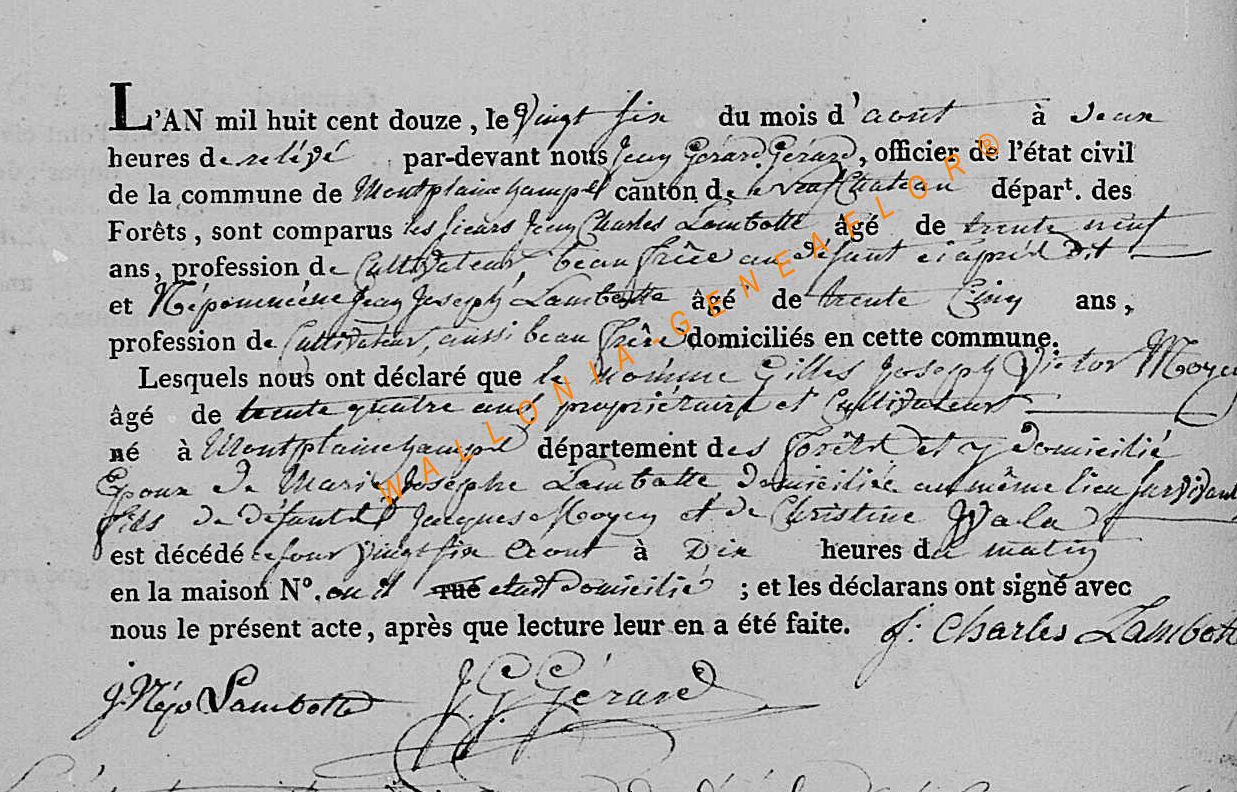 L'AN mil huit cent douze, le Vingt six du mois d'aout à deux
heures de relevé par-devant nous Jean Gérard Gérard, officier de l'état civil
de la commune de Montplainchamps canton de Neufchateau départ. des
Forêts, sont comparus les sieurs Jean Charles Lambotte âgé de trente neuf
ans, profession de Cultivateur beau frêre au défunt ci après dit
et Népomucène Jean Joseph Lambotte âgé de trente Cinq ans,
profession de Cultivateur, aussi beau frêre domiciliés en cette commune.
Lesquels nous ont déclaré que le nommé Gilles Joseph Victor Moyen
âgé de trente quatre ans propriétaire et Cultivateur
né à Montplainchamps département des Forêts et y domicilié
Epoux de Marie Joséphe Lambotte domiciliée au même lieu survivant
fils de défunts Jacques Moyen et de Christine Wala
est décédé ce jour vingt six aout à Dix heures du matin
en la maison N°. ou il rue etait domicilié ; et les déclarans ont signé avec
nous le présent acte, après que lecture leur en a été faite. J: Charles Lambotte
J. Népo Lambotte J. G. Gérard
WALLONIA-GENEAFLOR®